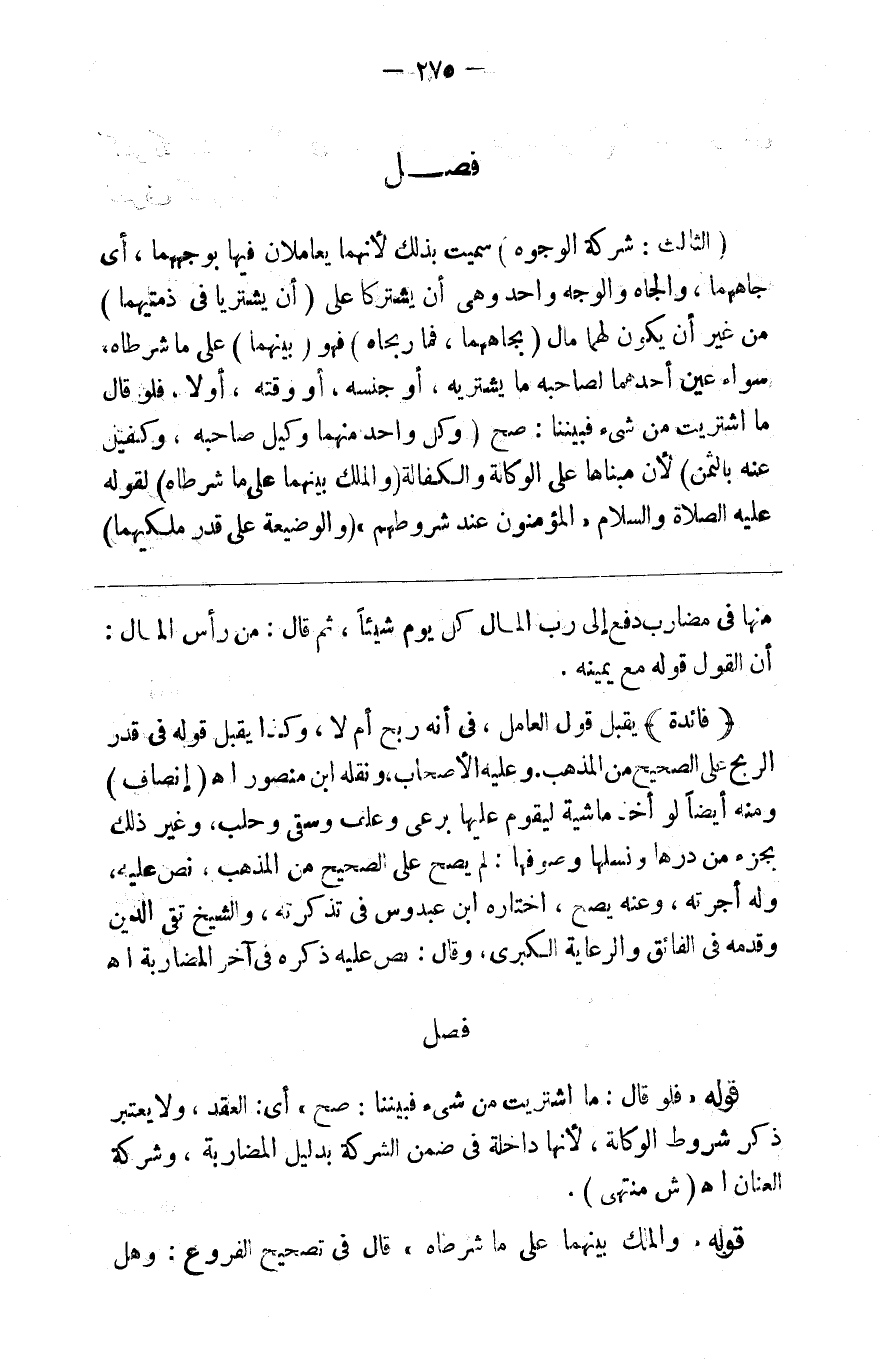 — ٢٧٥ —
فصـــل
( الثالث : شركة الوجوه ) سميت بذلك لأنهما يعاملان فيها بوجههما ، أى
جاههما ، والجاه والوجه واحد وهى أن يشتركا على ( أن يشتريا فى ذمتيهما )
من غير أن يكون لهما مال ( بجاههما ، فما ربحاه ) فهو ( بينهما ) على ما شرطاه،
سواء عين أحدهما لصاحبه ما يشتريه ، أو جنسه ، أو وقته ، أولا . فلو قال
ما اشتريت من شىء فبيننا : صح ( وكل واحد منهما وكيل صاحبه ، وكفيل
عنه بالثمن) لأن مبناها على الوكالة والكفالة(والملك بينهما على ما شرطاه) لقوله
عليه الصلاة والسلام « المؤمنون عند شروطهم »(والوضيعة على قدر ملكيهما)
منها فى مضارب دفع إلى رب المال كل يوم شيئاً ، ثم قال : من رأس المال :
أن القول قوله مع يمينه .
﴿ فائدة ﴾ يقبل قول العامل ، فى أنه ربح أم لا ، وكذا يقبل قوله فى قدر
الربح على الصحيح من المذهب. وعليه الأصحاب، ونقله ابن منصور ا ه ( إنصاف )
ومنه أيضاً لو أخذ ماشية ليقوم عليها برعى وعلف وسقى وحلب، وغير ذلك
بجزء من درها ونسلها وصوفها : لم يصح على الصحيح من المذهب ، نص عليه،
وله أجرته ، وعنه يصح ، اختاره ابن عبدوس فى تذكرته ، والشيخ تقى الدين
وقدمه فى الفائق والرعاية الكبرى، وقال : نص عليه ذكره فى آخر المضاربة ا ه
فصل
قوله « فلو قال : ما اشتريت من شىء فبيننا : صح » أى: العقد ، ولا يعتبر
ذكر شروط الوكالة ، لأنها داخلة فى ضمن الشركة بدليل المضاربة ، وشركة
العنان ا ه ( ش منتهى ) .
قوله « والملك بينهما على ما شرطاه » قال فى تصحيح الفروع : وهل